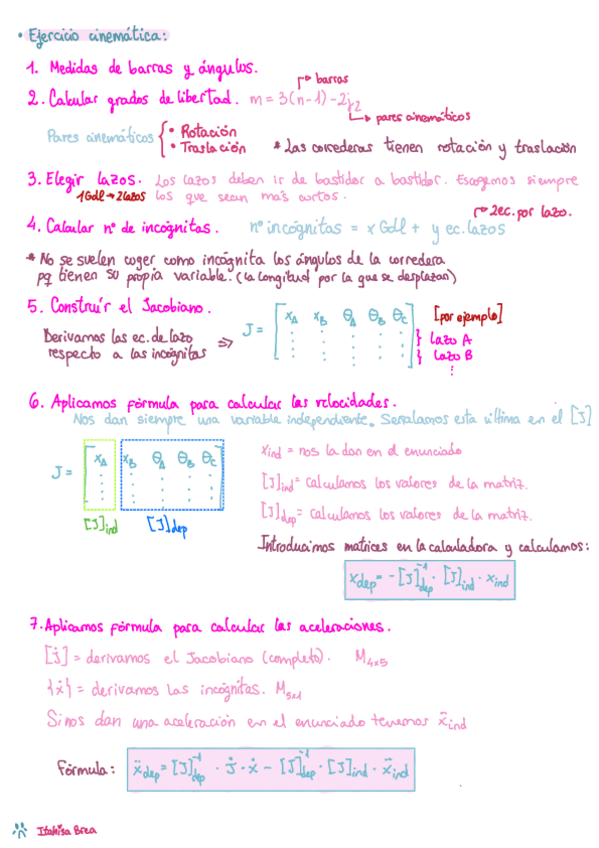 • Ejercicio cinemática:
1. Medidas de barras y ángulos.
barras
2. Calcular grados de libertad. m = 3(n-1) - 2j₁₂
pares cinemáticos
Pares cinemáticos { • Rotación
• Traslación
* Las correderas tienen rotación y traslación
3. Elegir lazos. Los lazos deben ir de bastidor a bastidor. Escogemos siempre
1Gdl → 2lazos los que sean más cortos.
2ec. por lazo.
4. Calcular nº de incógnitas. nº incógnitas = x Gdl + y ec. lazos
* No se suelen coger como incógnita los ángulos de la corredera
pq tienen su propia variable. (la longitud por la que se desplazan)
5. Construír el Jacobiano.
Derivamos las ec. de lazo
respecto a las incógnitas ⇒ J = [ x_A x_B θ_A θ_B θ_C ] [por ejemplo]
} lazo A
} lazo B
⋮
6. Aplicamos fórmula para calcular las velocidades.
Nos dan siempre una variable independiente. Señalamos esta última en el [J]
J = [ x_A x_B θ_A θ_B θ_C ]
[J]ind [J]dep
xind = nos la dan en el enunciado
[J]ind = calculamos los valores de la matriz.
[J]dep = calculamos los valores de la matriz.
Introducimos matrices en la calculadora y calculamos:
ẋdep = - [J]⁻¹dep · [J]ind · ẋind
7. Aplicamos fórmula para calcular las aceleraciones.
[J̇] = derivamos el Jacobiano (completo). M₄ₓ₅
{ẋ} = derivamos las incógnitas. M₅ₓ₁
Si nos dan una aceleración en el enunciado tenemos ẍind
Fórmula: ẍdep = [J]⁻¹dep · J̇ · ẋ - [J]⁻¹dep · [J]ind · ẍind
Itahisa Brea